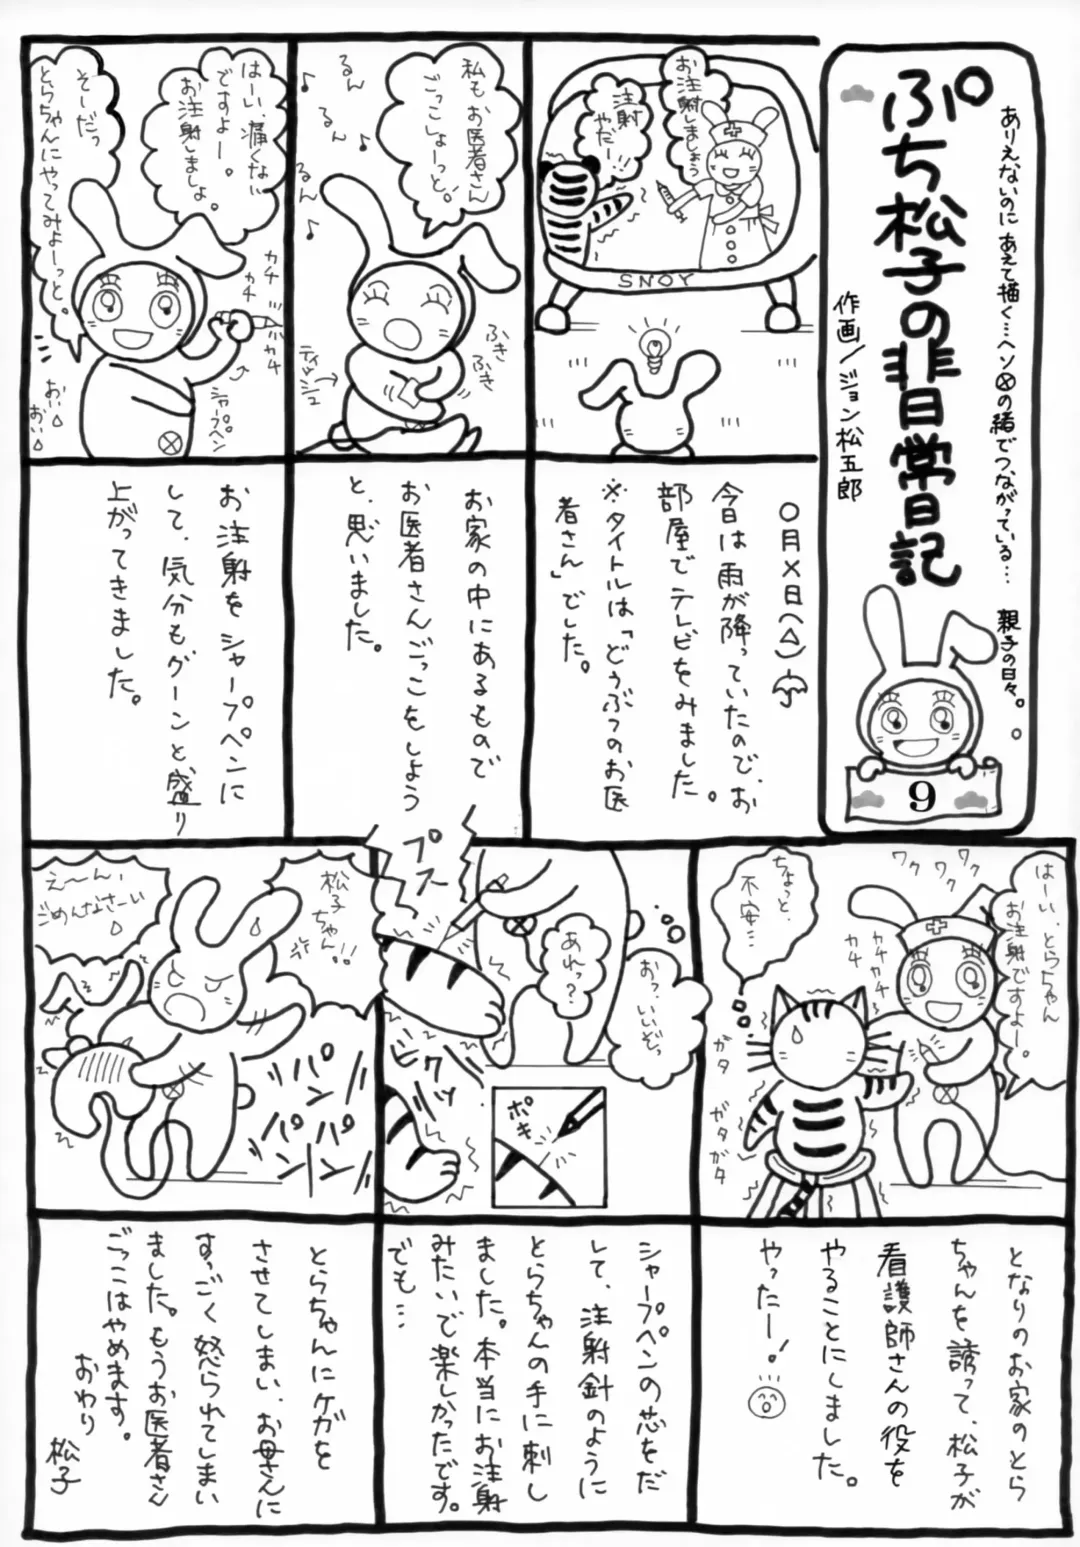 ありえないのに あえて描く…ヘソの緒でつながっている… 親子の日々。
ぷち松子の非日常日記
作画/ジョン松五郎
9
お注射しましょう
注射
やだー!!
SNOY
私もお医者さん
ごっこしょーっと!
るん
るん
るん
ふき
ふき
ティッシュ
はーい、痛くない
ですよー。
お注射しましょ。
そーだっ
とらちゃんにやってみよーっと。
カチ
カチ
カチ
シャープペン
おい
おい
〇月×日(△)
今日は雨が降っていたので、お
部屋でテレビをみました。
※タイトルは「どうぶつのお医
者さん」でした。
お家の中にあるもので
お医者さんごっこをしよう
と、思いました。
お注射をシャープペンに
して、気分もグーンと盛り
上がってきました。
はーい、とらちゃん
お注射ですよー。
ワク
ワク
ワク
カチカチ
カチ
ちょっと、
不安…
ガタ
ガタガタ
おっ、いいぞっ
あれっ?
プス
ビクッ
ポキ
松子
ちゃん!!
え〜ん、
ごめんなさーい
パン
パン
パン
パン
となりのお家のとら
ちゃんを誘って、松子が
看護師さんの役を
やることにしました。
やったー!
シャープペンの芯をだ
して、注射針のように
とらちゃんの手に刺し
ました。本当にお注射
みたいで楽しかったです。
でも…
とらちゃんにケガを
させてしまい、お母さんに
すっごく怒られてしまい
ました。もうお医者さん
ごっこはやめます。
おわり
松子